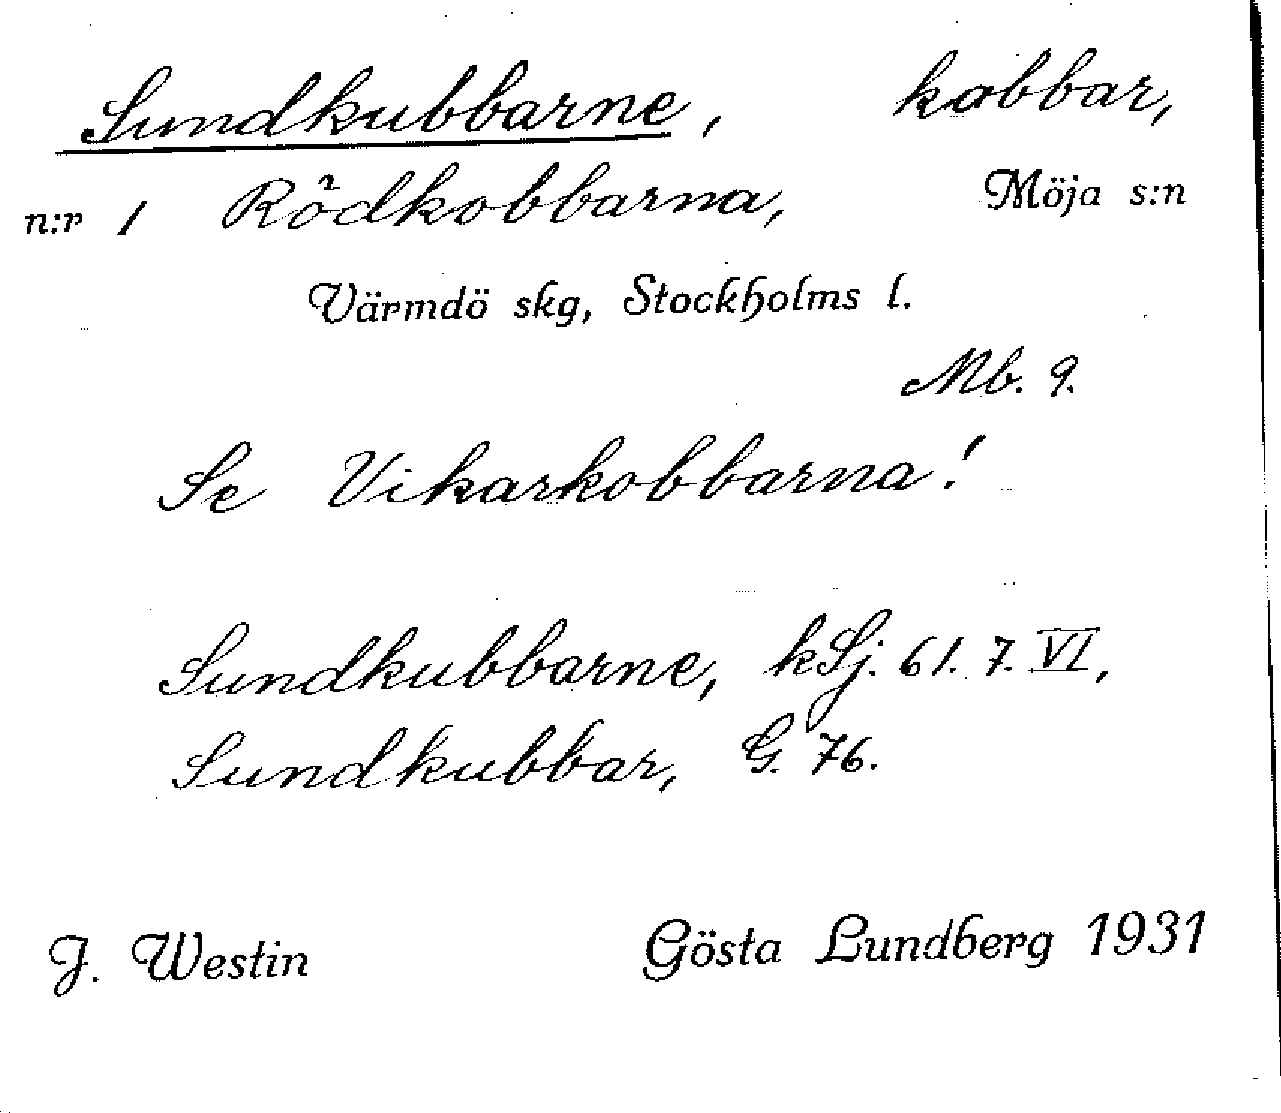 Sundkubbarne, kobbar,
n:r 1 Rödkobbarna, Möja s:n
Värmdö skg, Stockholms l.
Mb. 9.
Se Vikarkobbarna!
Sundkubbarne, kSj. 61. 7. VI,
Sundkubbar, G. 76.
J. Westin Gösta Lundberg 1931